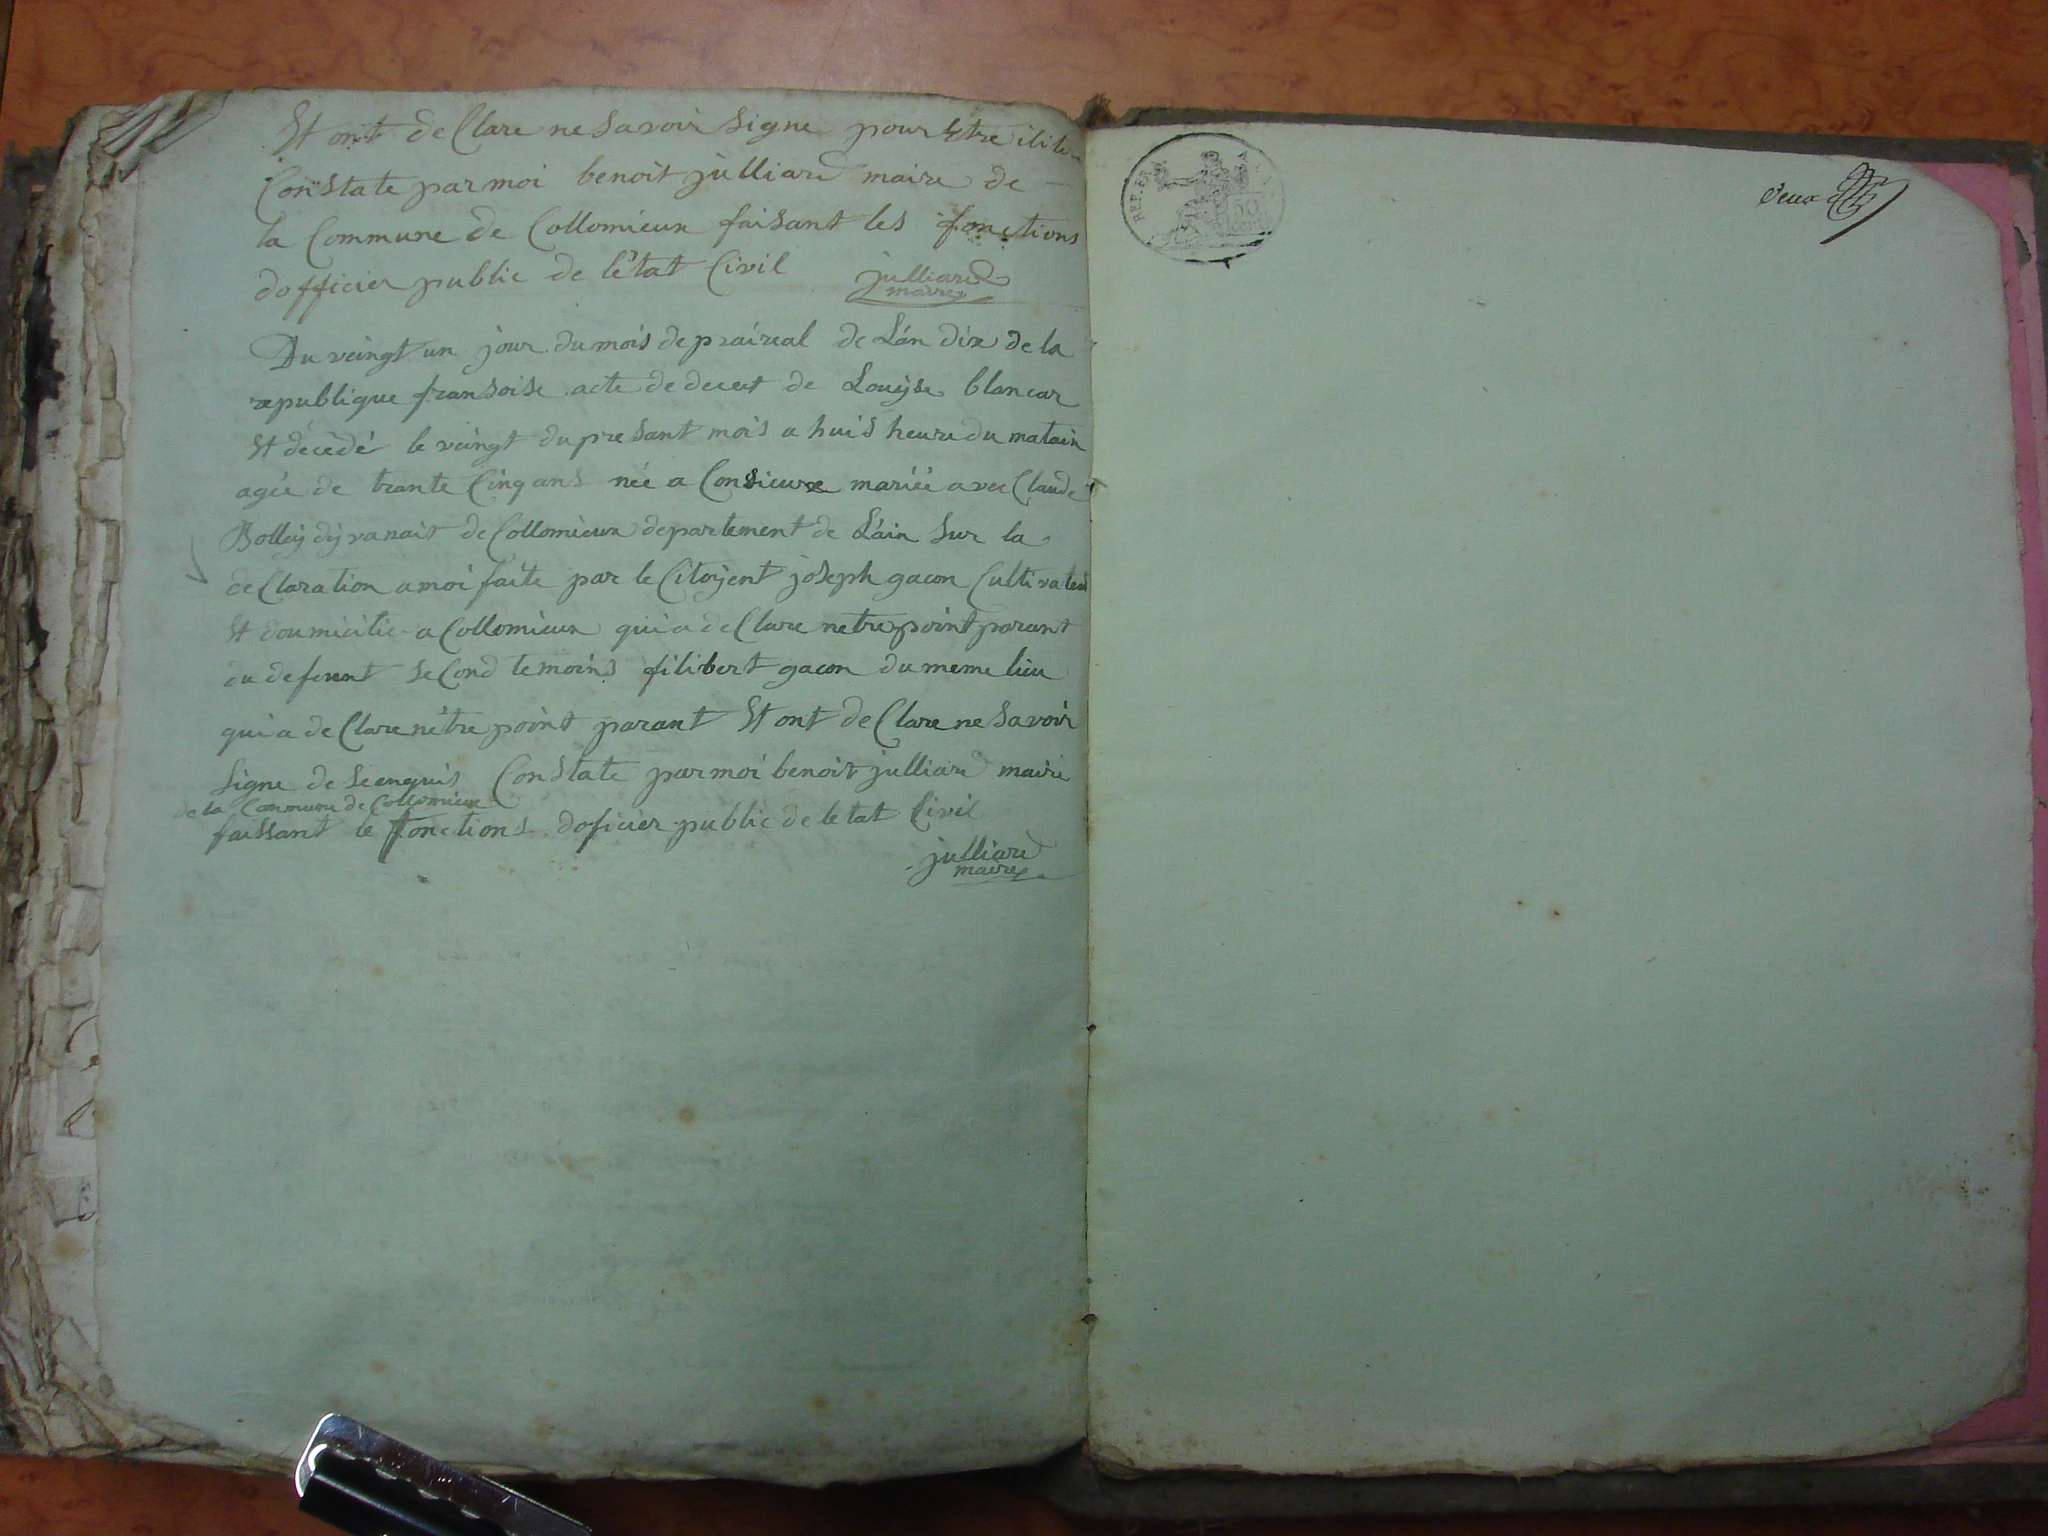 Et ont de Clare ne savoir signe pour Etre ilite
Constate par moi benoit julliard maire de
la Commune de Collomieux faisant les fonctions
dofficier public de létat Civil julliard
maire
Du veingt un jour du mois de praireal de Lán dix de la
republique fransoise acte de decet de Louÿse blancar
Et décédé le veingt du presant mois a huis heure du matain
agée de trante Cinq ans née a Consieux mariée avec Claude
Bolleÿ dÿvanait de Collomieux departement de Láin Sur la
de Claration a moi faite par le Citoÿent joseph gacon Cultivateur
Et doumicilie a Collomieux qui a de Clare netre point parant
du defeunt seCond temoins filibert gacon du meme lieu
qui a de Clare nêtre point parant Et ont de Clare ne savoir
signe de se enquis Constate par moi benoit julliard maire
de la Commune de Collomieux
faissant le fonctions doficier public de letat Civil
julliard
maire
REP. FRA.
50
deux